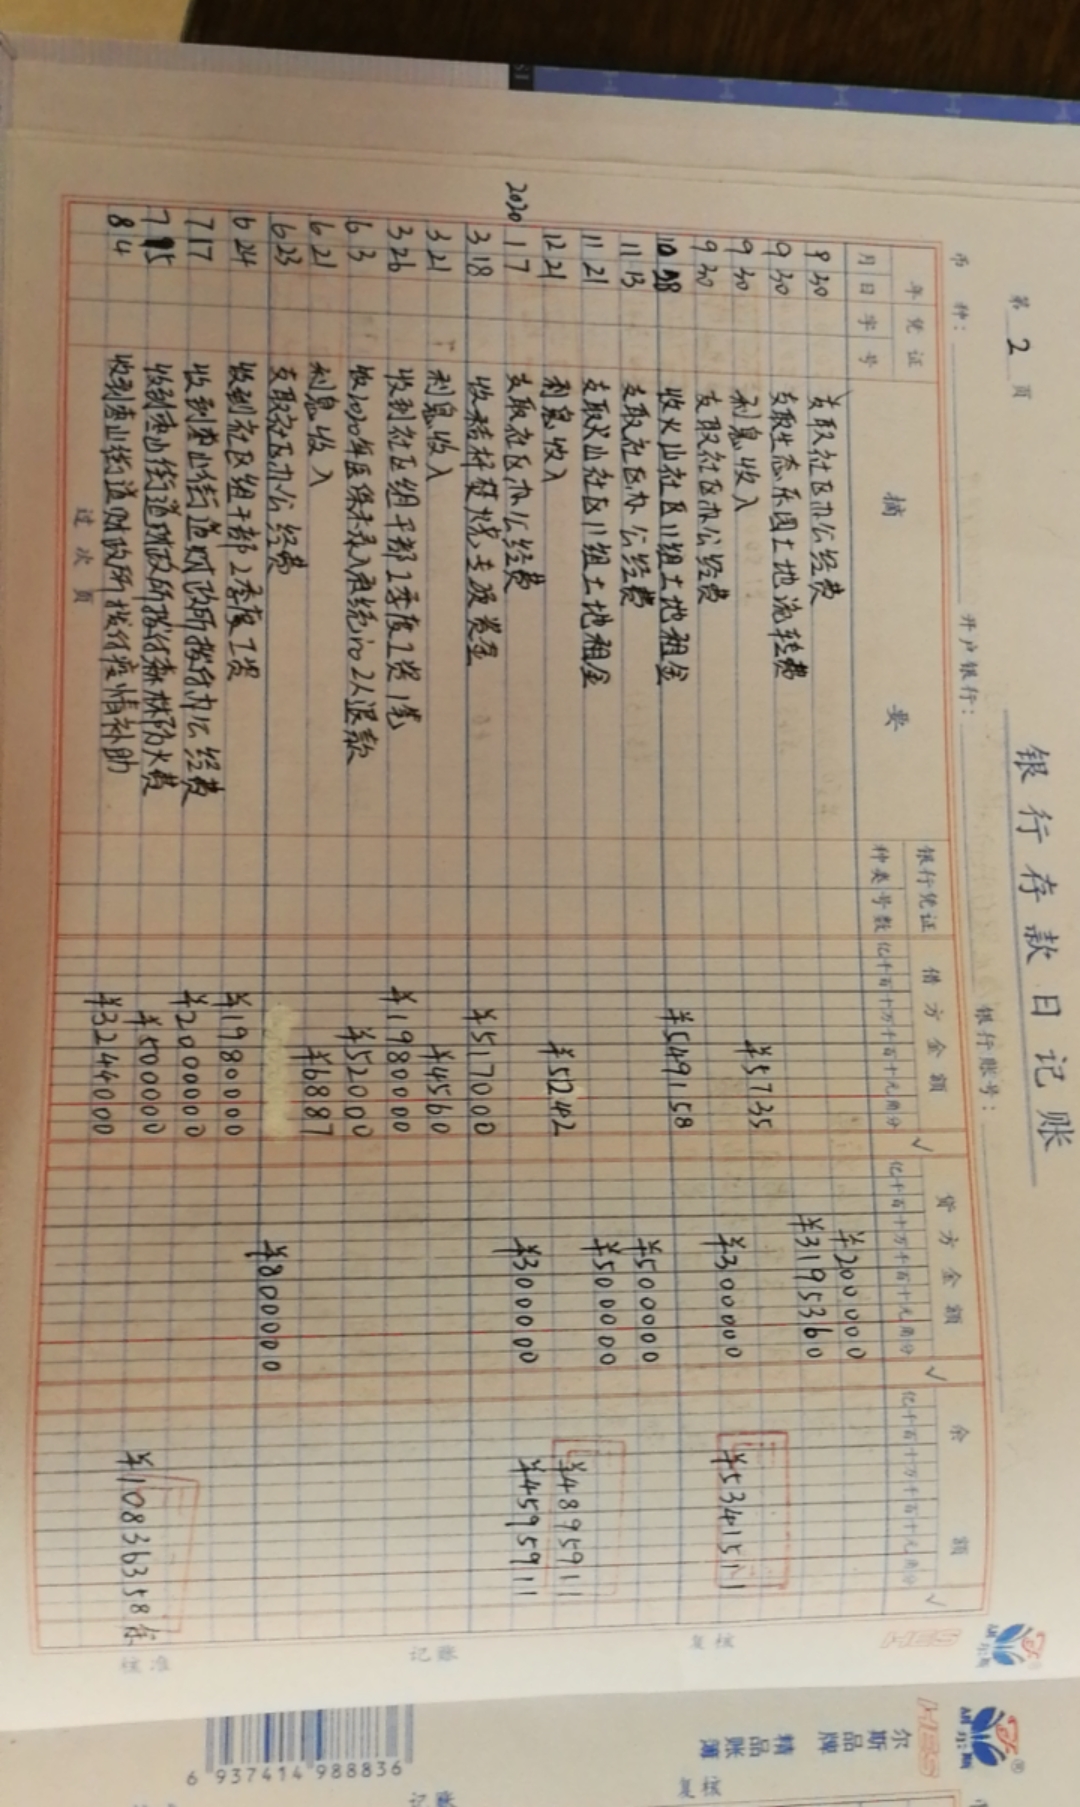 银行存款日记账
第 2 页
币 种：
开户银行：
银行账号：
年 凭证 摘 要 银行凭证 借方金额 √ 贷方金额 √ 余 额 √
月 日 字 号 种类 号数 亿千百十万千百十元角分 亿千百十万千百十元角分 亿千百十万千百十元角分
9 30 支取社区办公经费 ¥2000000
9 30 支取生态乐园土地流转费 ¥3195360
9 30 利息收入 ¥5735
9 30 支取社区办公经费 ¥3000000 ¥5341511
10 28 收火山社区川组土地租金 ¥549158
11 13 支取社区办公经费 ¥500000
11 21 支取火山社区川组土地租金 ¥500000
12 21 利息收入 ¥5242 ¥4895911
2020 1 7 支取社区办公经费 ¥300000 ¥4595911
3 18 收秸秆焚烧专项资金 ¥517000
3 21 利息收入 ¥4560
3 26 收到社区组干部1季度工资1笔 ¥1980000
6 3 收2020年医保未录入系统的2人退款 ¥52000
6 21 利息收入 ¥6887
6 23 支取社区办公经费 ¥800000
6 24 收到社区组干部2季度工资 ¥1980000
7 17 收到唐山街道财政所拨付办公经费 ¥2000000
7 15 收到唐山街道财政所拨付森林防火费 ¥500000
8 4 收到唐山街道财政所拨付疫情补助 ¥3244000 ¥10836358
过次页
核准
记账
复核
HES
尔斯品牌
精品账簿
HES
6 937414 988836
记账
复核